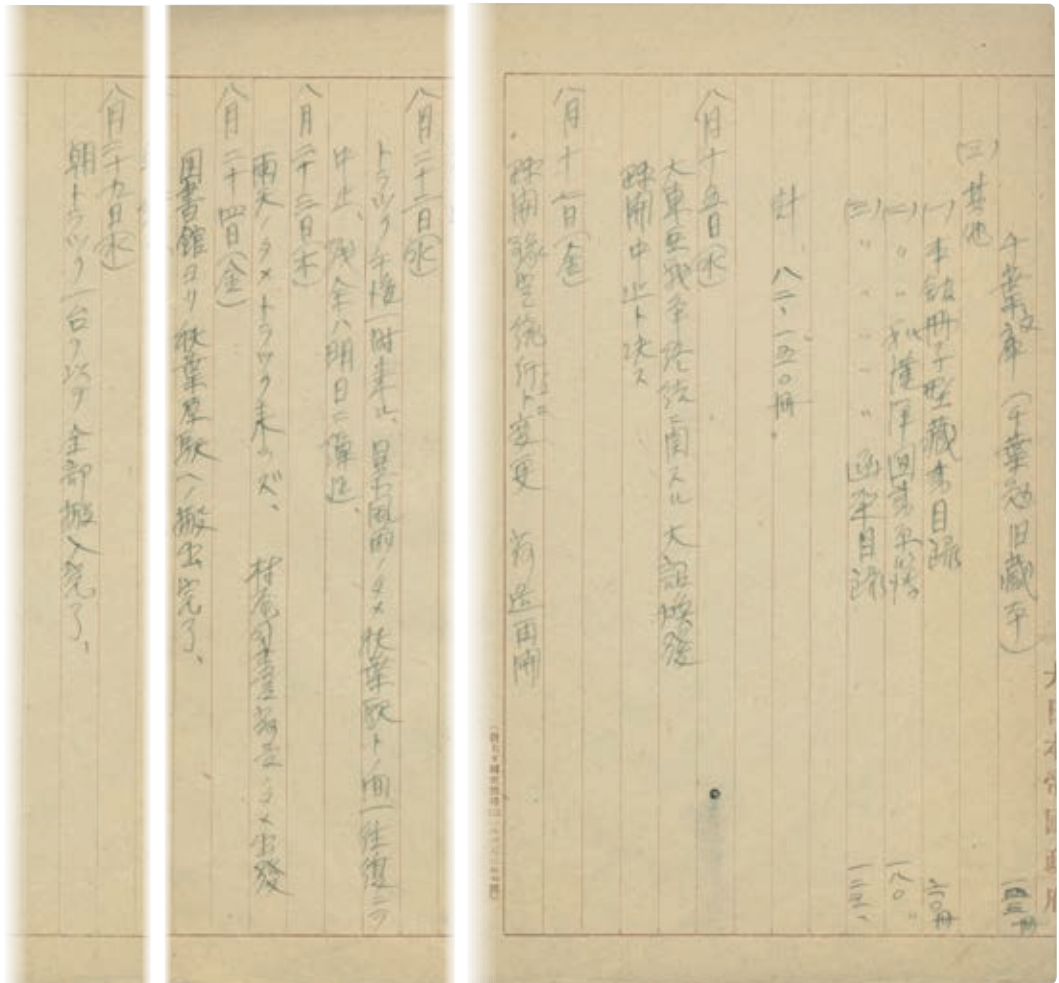 千葉文庫(千葉氏旧蔵本)
(三)其他
(一)本館冊子型蔵書目録
(二)〃 〃
(三)〃 〃 〃 〃 函架目録
計 八二、一五〇冊
八月十五日(水)
大東亜戦争終結ニ関スル大詔煥発
疎開中止ト決ス
八月十七日(金)
疎開予定続行ト変更 荷造再開
八月二十二日(水)
トラック午後一時来ル、暴風雨ノタメ秋葉駅ト間一往復ニテ
中止、残余ハ明日ニ
八月二十三日(木)
雨天ノタメトラック来ラズ、 村尾司書 ノタメ出発
八月二十四日(金)
図書館ヨリ秋葉原駅ヘノ搬出完了、
八月二十九日(水)
朝トラック一台ヲ以テ全部搬入完了、